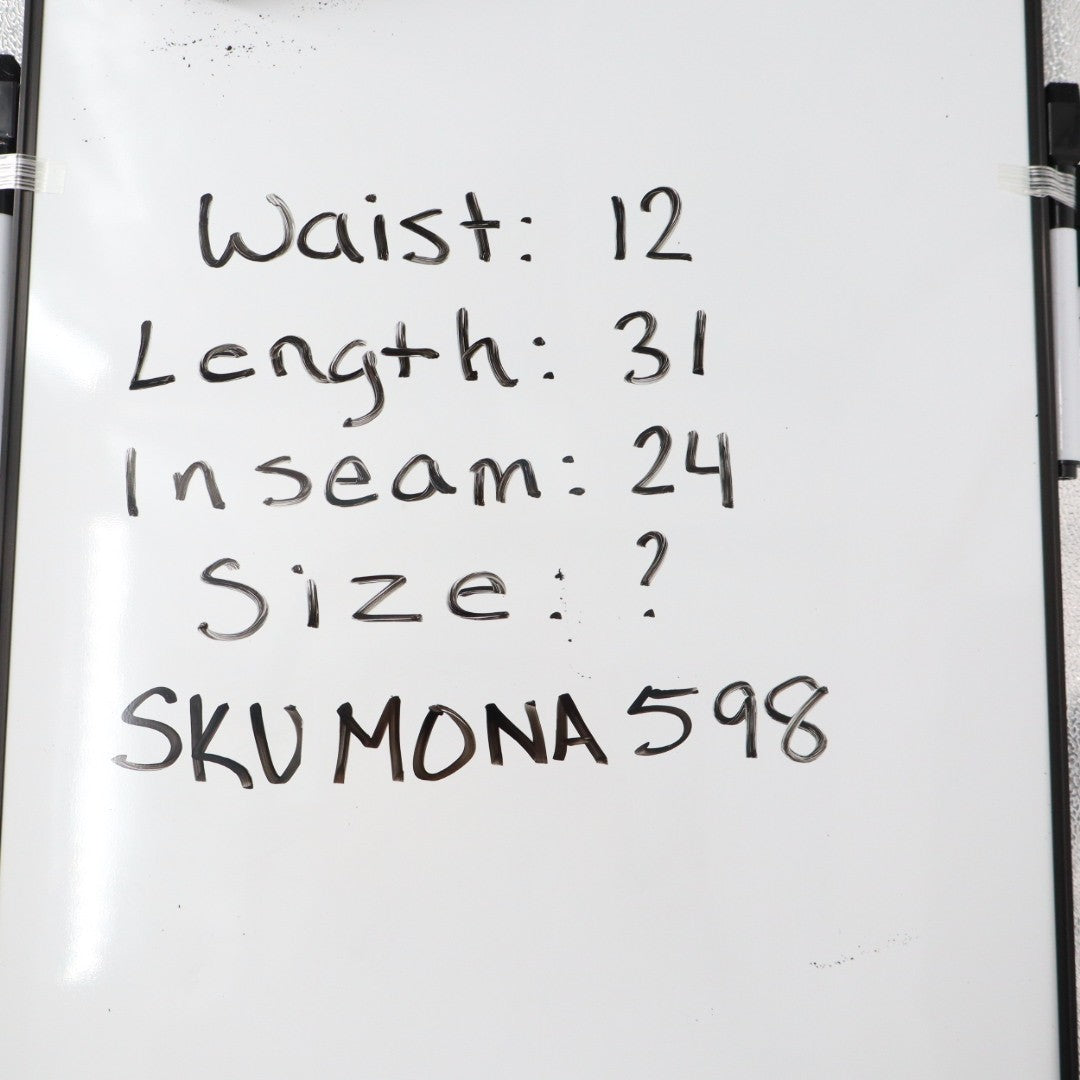 Waist: 12
Length: 31
Inseam: 24
Size: ?
SKU MONA 598